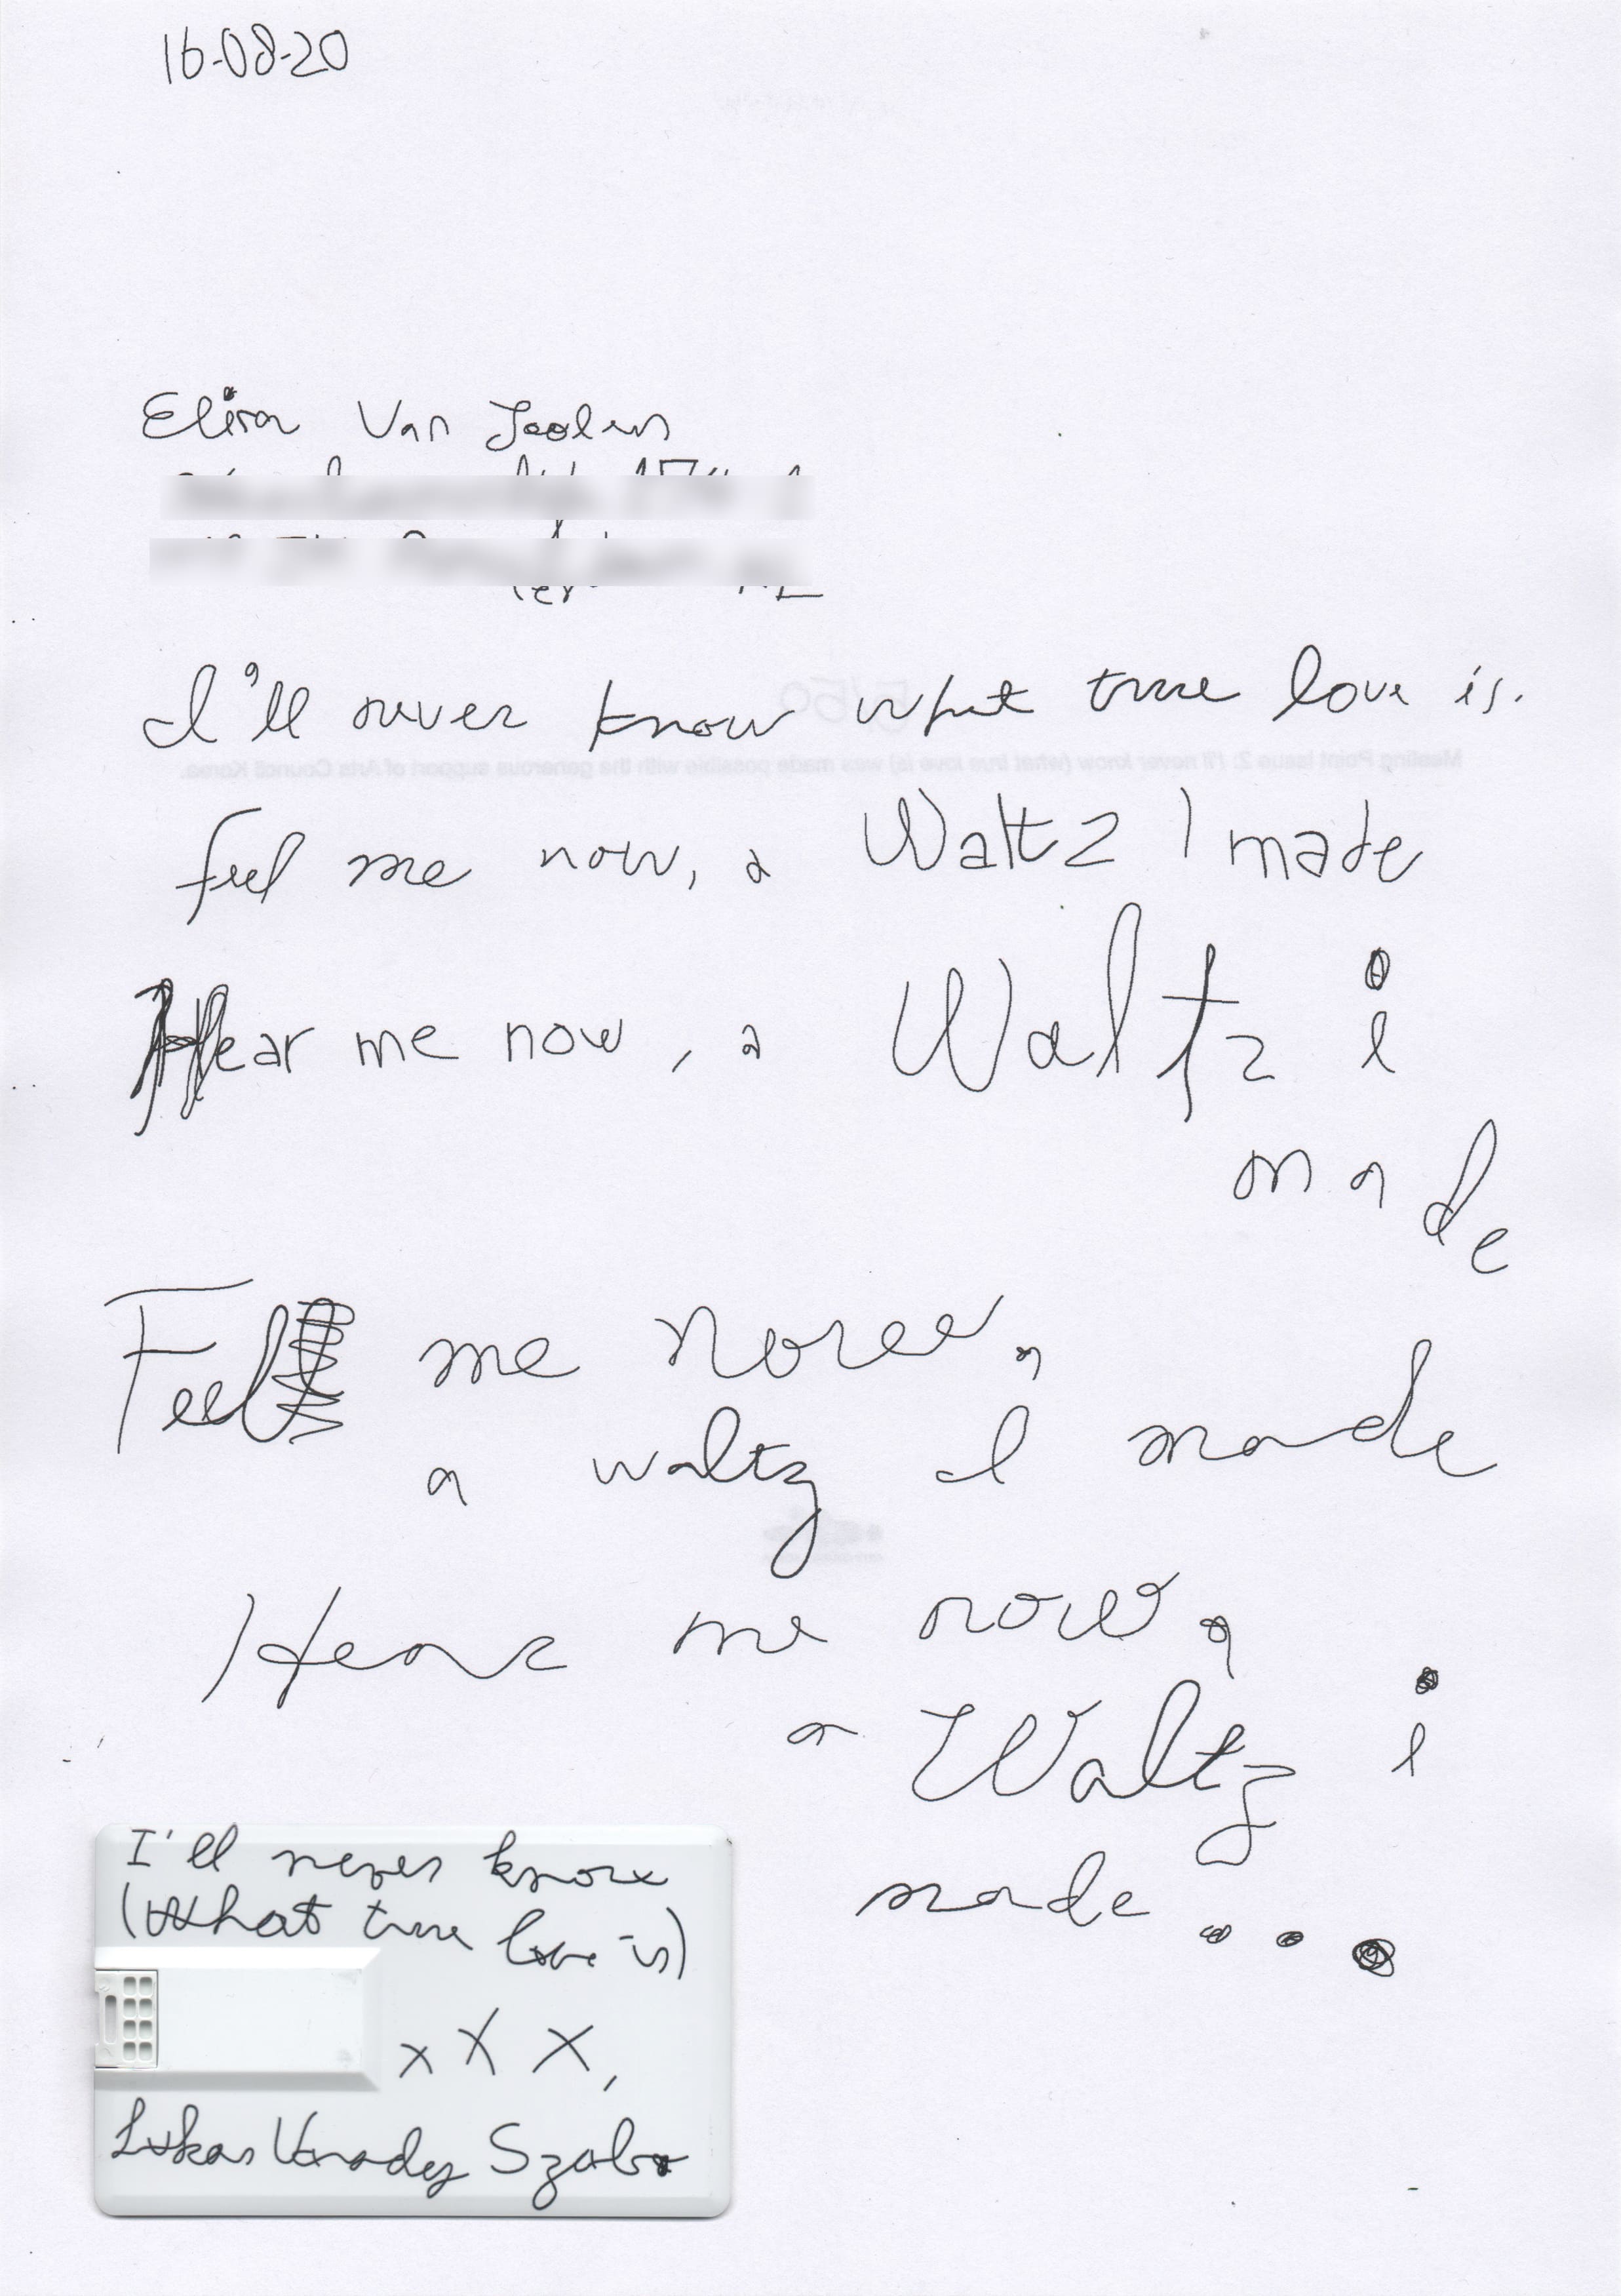 16-08-20
Elisa Van Joolen
I'll never know what true love is.
5/50
Meeting Point Issue 2: I'll never know (what true love is) was made possible with the generous support of Arts Council Korea.
feel me now, a Waltz I made
Hear me now, a Waltz i
made
Feel me now,
a waltz I made
Hear me now,
a Waltz i
made ...
I'll never know
(What true love is)
x X X,
Lukas Varady Szabo